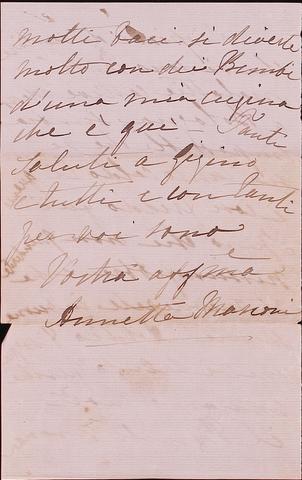 molti baci si diverte
molto con dei Bimbi
d'una mia cugina
che è qui - Tanti
saluti a Gigino
e tutti e con tanti
per voi sono
Vostra affma
Annetta